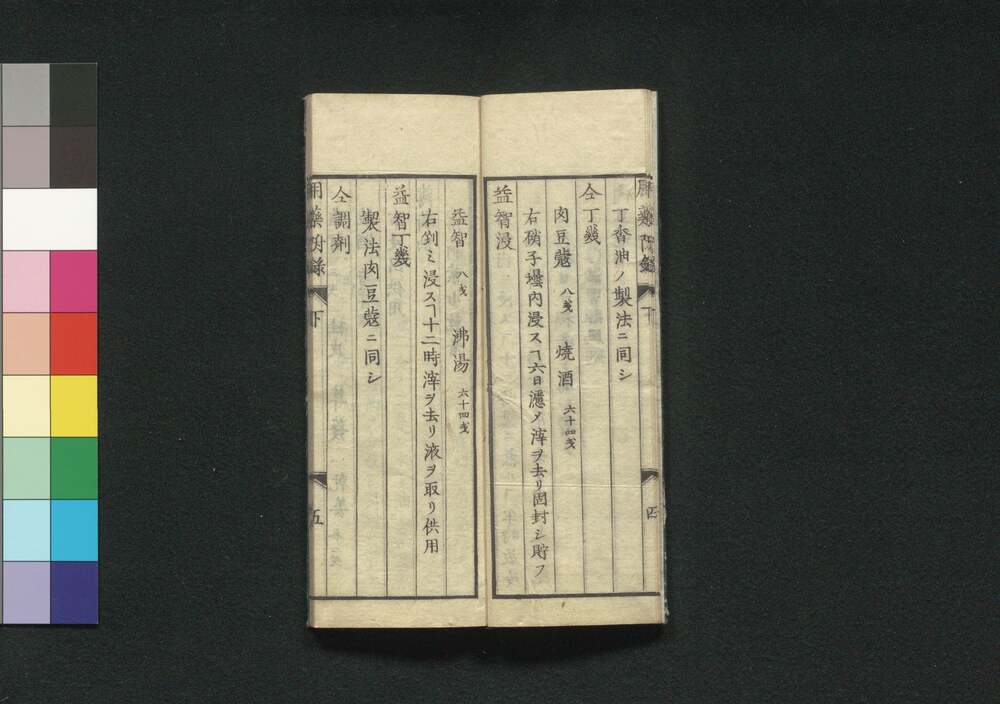 用藥附録 下 四
丁香油ノ製法ニ同シ
仝丁幾
肉豆蔲 八戔 焼酒 六十四戔
右硝子壜内浸スヿ六日濾メ滓ヲ去リ固封シ貯フ
益智浸
益智 八戔 沸湯 六十四戔
右剉ミ浸スヿ十二時滓ヲ去リ液ヲ取リ供用
益智丁幾
製法肉豆蔲ニ同シ
仝調剤
用藥附録 下 五